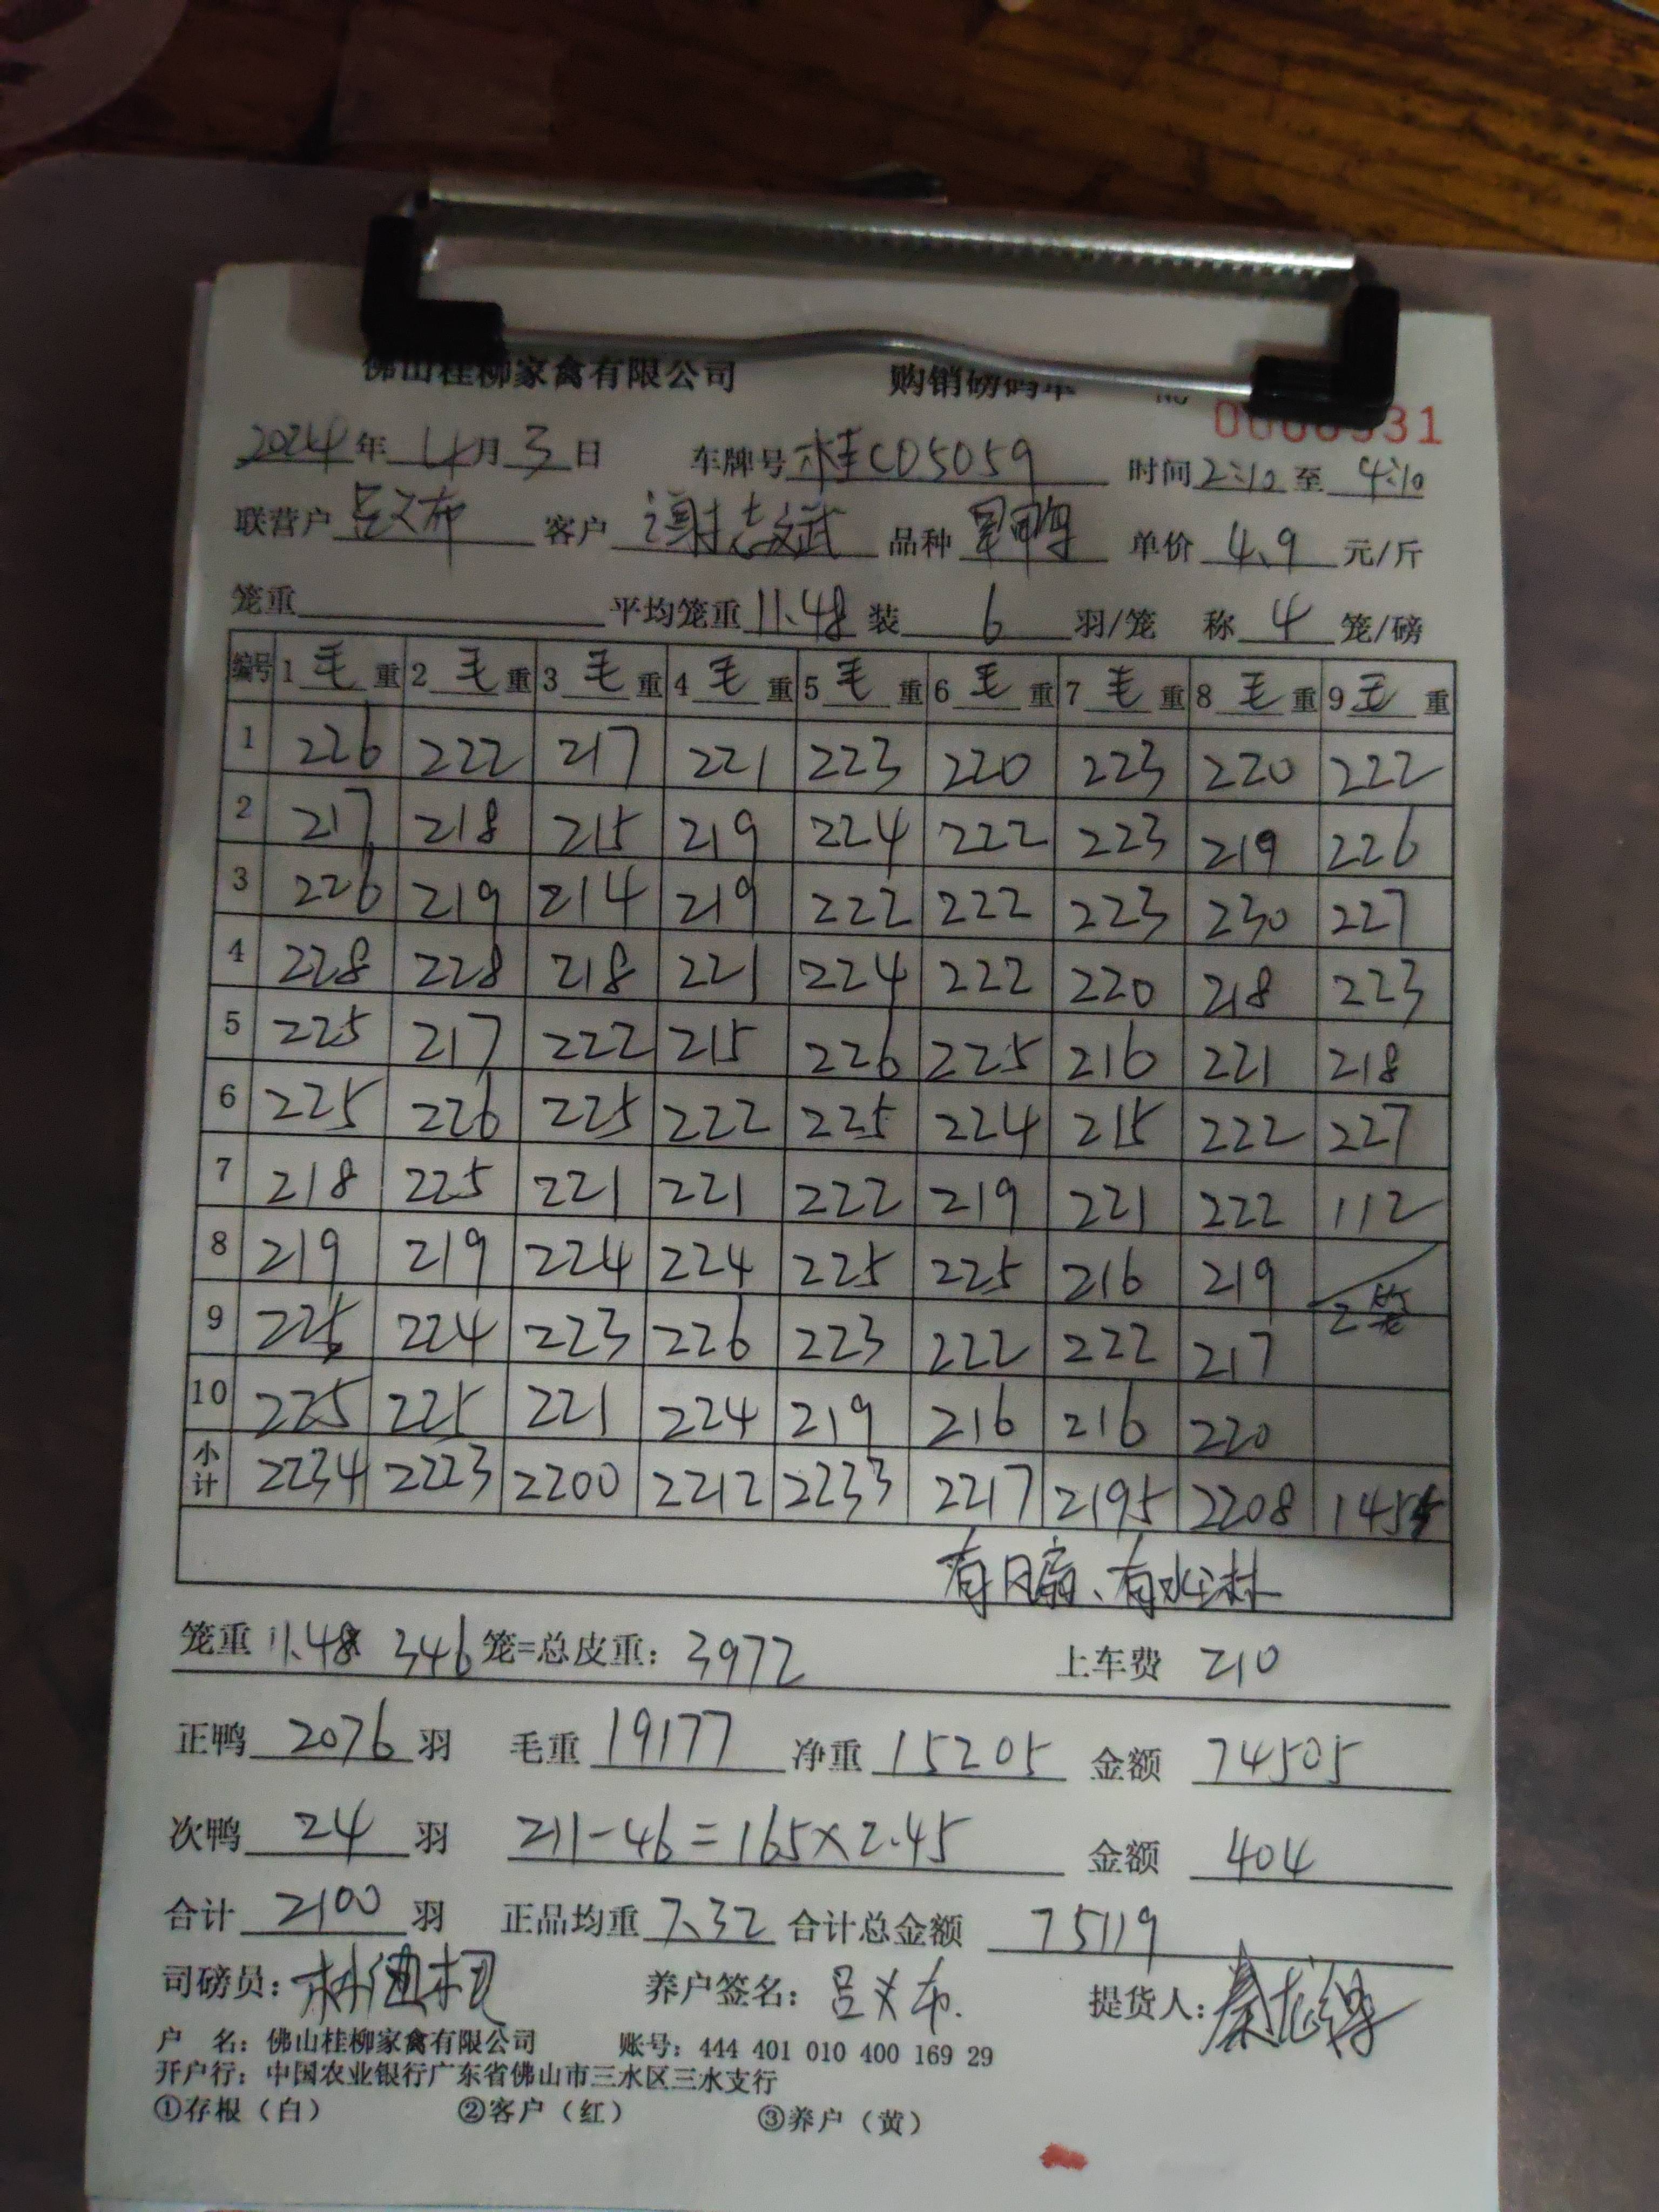 佛山桂柳家禽有限公司 购销磅码单 No 0000531
2024年 4月 3日 车牌号 桂CD5059 时间 2:10 至 4:10
联营户 吕义布 客户 谢志斌 品种 单价 4.9 元/斤
笼重 平均笼重 11.48 装 6 羽/笼 称 4 笼/磅
编号 1 毛 重 2 毛 重 3 毛 重 4 毛 重 5 毛 重 6 毛 重 7 毛 重 8 毛 重 9 毛 重
1 226 222 217 221 223 220 223 220 222
2 217 218 215 219 224 222 223 219 226
3 226 219 214 219 222 222 223 230 227
4 228 228 218 221 224 222 220 218 223
5 225 217 222 215 226 225 216 221 218
6 225 226 225 222 225 224 215 222 227
7 218 225 221 221 222 219 221 222 112
8 219 219 224 224 225 225 216 219 2笼
9 225 224 223 226 223 222 222 217
10 225 225 221 224 219 216 216 220
小计 2234 2223 2200 2212 2233 2217 2195 2208 1455
有风扇、有水淋
笼重 11.48 346 笼=总皮重: 3972 上车费 210
正鸭 2076 羽 毛重 19177 净重 15205 金额 74505
次鸭 24 羽 211-46=165×2.45 金额 404
合计 2100 羽 正品均重 7.32 合计总金额 75119
司磅员: 养户签名: 吕义布. 提货人:
户 名: 佛山桂柳家禽有限公司 账号: 444 401 010 400 169 29
开户行: 中国农业银行广东省佛山市三水区三水支行
①存根（白） ②客户（红） ③养户（黄）